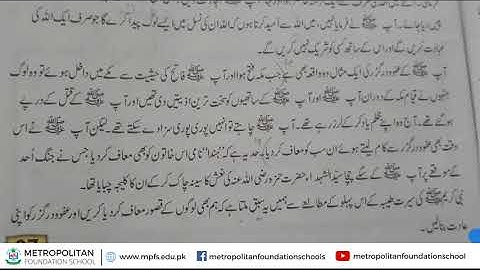 پیس دیا جائے۔ آپ ﷺ نے فرمایا نہیں، میں اللہ سے امید کرتا ہوں کہ اللہ ان کی نسل میں ایسے لوگ پیدا کرے گا جو صرف ایک اللہ کی
عبادت کریں گے اور اس کے ساتھ کسی کو شریک نہیں کریں گے۔
آپ ﷺ کے عفو و درگزر کی ایک مثال وہ واقعہ بھی ہے جب مکہ فتح ہوا اور آپ ﷺ فاتح کی حیثیت سے مکے میں داخل ہوئے تو وہ لوگ
جنھوں نے قیام مکہ کے دوران آپ ﷺ اور آپ ﷺ کے ساتھیوں کو سخت ترین اذیتیں دی تھیں اور آپ ﷺ کے قتل کے درپے
ہو گئے تھے۔ آج وہ اپنے مظالم یاد کر کے لرز رہے تھے۔ آپ ﷺ چاہتے تو انہیں پوری پوری سزا دے سکتے تھے لیکن آپ ﷺ نے اس
وقت بھی عفو و درگزر سے کام لیتے ہوئے ان سب کو معاف کر دیا۔ حد یہ ہے کہ ہندا نامی اس خاتون کو بھی معاف کر دیا جس نے جنگ اُحد
کے موقعے پر آپ ﷺ کے چچا سیّد الشہدا، حضرت حمزہ رضی اللہ عنہ کی نعش کا سینہ چاک کر کے ان کا کلیجہ چبایا تھا۔
نبی کریم ﷺ کی سیرت طیبہ کے اس پہلو کے مطالعے سے ہمیں یہ سبق ملتا ہے کہ ہم بھی لوگوں کے قصور معاف کر دیا کریں اور عفو و درگزر کو اپنی
عادت بنائیں۔
METROPOLITAN
FOUNDATION SCHOOL
www.mpfs.edu.pk
metropolitanfoundationschools
metropolitanfoundationschool